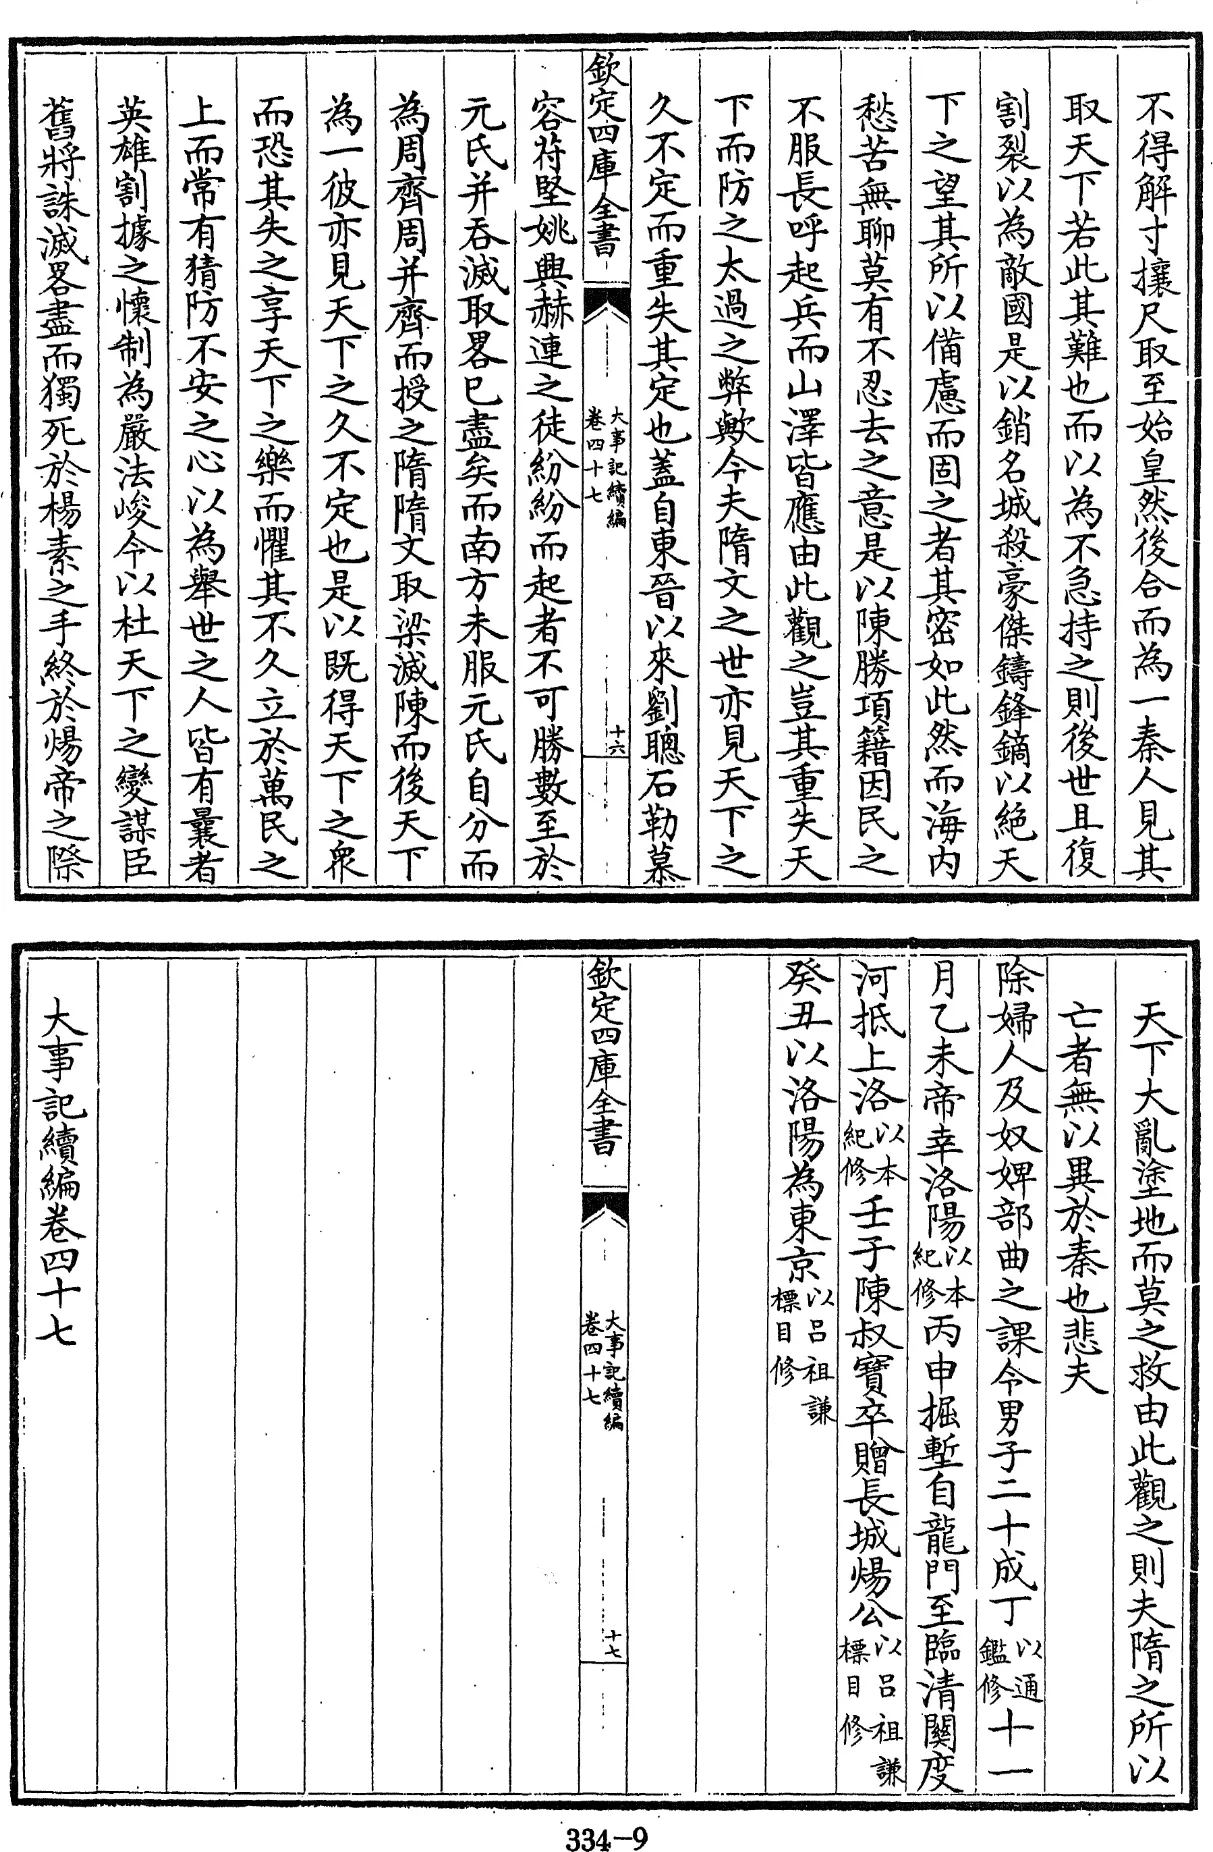 不得解寸攘尺取至始皇然後合而為一秦人見其
取天下若此其難也而以為不急持之則後世且復
割裂以為敵國是以銷名城殺豪傑鑄鋒鏑以絕天
下之望其所以備慮而固之者其密如此然而海内
愁苦無聊莫有不忍去之意是以陳勝項籍因民之
不服長呼起兵而山澤皆應由此觀之豈其重失天
下而防之太過之弊歟今夫隋文之世亦見天下之
久不定而重失其定也蓋自東晉以來劉聰石勒慕
欽定四庫全書
大事記續編
卷四十七
十六
容苻堅姚興赫連之徒紛紛而起者不可勝數至於
元氏并吞滅取畧已盡矣而南方未服元氏自分而
為周齊周并齊而授之隋隋文取梁滅陳而後天下
為一彼亦見天下之久不定也是以既得天下之衆
而恐其失之享天下之樂而懼其不久立於萬民之
上而常有猜防不安之心以為舉世之人皆有曩者
英雄割據之懷制為嚴法峻令以杜天下之變謀臣
舊將誅滅畧盡而獨死於楊素之手終於煬帝之際
天下大亂塗地而莫之救由此觀之則夫隋之所以
亡者無以異於秦也悲夫
除婦人及奴婢部曲之課令男子二十成丁以通鑑修十一
月乙未帝幸洛陽以本紀修丙申掘塹自龍門至臨清關度
河抵上洛以本紀修壬子陳叔寶卒贈長城煬公以呂祖謙標目修
癸丑以洛陽為東京以呂祖謙標目修
欽定四庫全書
大事記續編
卷四十七
十七
大事記續編卷四十七
334-9